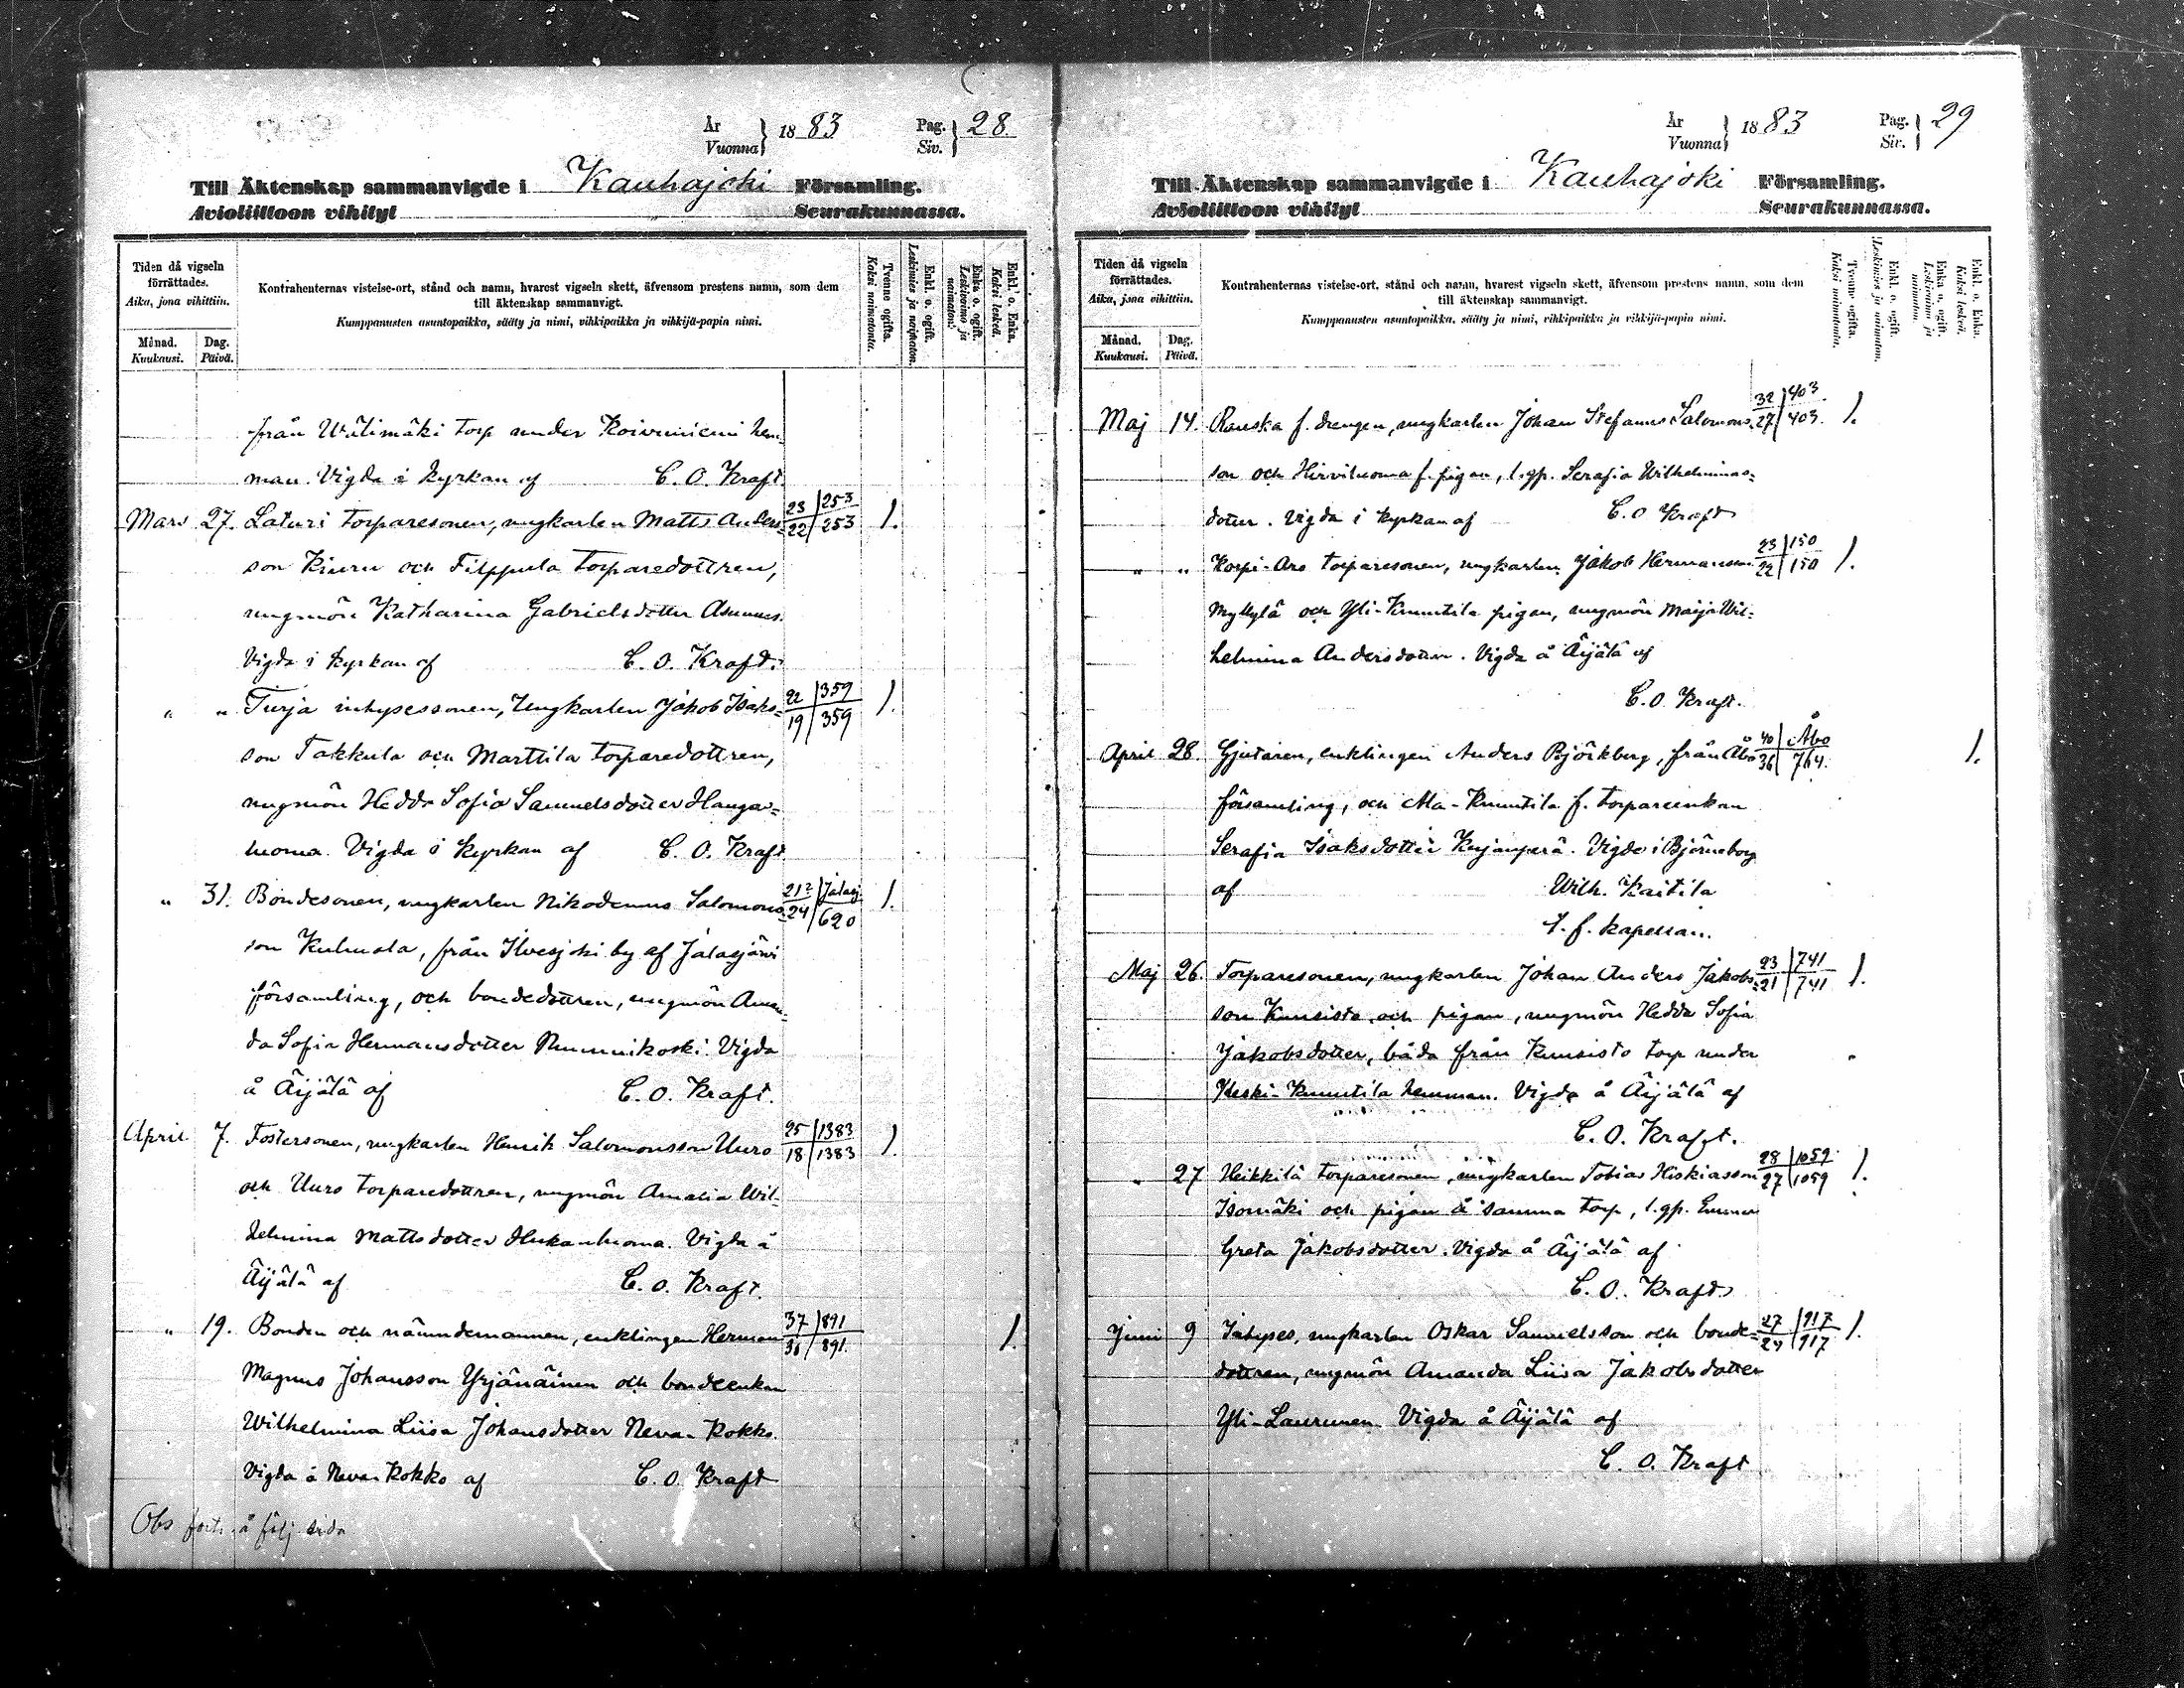 År
Vuonna } 18 83 Pag.
Siv. } 28
Till Äktenskap sammanvigde i Kauhajoki Församling.
Avioliittoon vihityt Seurakunnassa.
Tiden då vigseln
förrättades.
Aika, jona vihittiin.
Månad.
Kuukausi.
Dag.
Päivä.
Kontrahenternas vistelse-ort, stånd och namn, hvarest vigseln skett, äfvensom prestens namn, som dem
till äktenskap sammanvigt.
Kumppanusten asuntopaikka, sääty ja nimi, vihkipaikka ja vihkijä-papin nimi.
Tvenne ogifta.
Kaksi naimatonta.
Enkl. o. ogift.
Leskimies ja naimaton.
Enka o. ogift.
Leskivaimo ja
naimaton.
Enkl. o. Enka.
Kaksi leskeä.
från Wälimäki torp under Koivuniemi hem-
man. Vigda i kyrkan af C. O. Kraft
Mars 27. Laturi torparesonen, ungkarlen Matts Anders= 23/22 253/253 1.
son Kiuru och Filppula torparedottren,
ungmön Katharina Gabrielsdotter Asunmes.
Vigda i kyrkan af C. O. Kraft.
" " Turja inhysessonen, Ungkarlen Jakob Isaks= 22/19 359/359 1.
son Takkula och Marttila torparedottren,
ungmön Hedda Sofia Samuelsdotter Hanga=
luoma. Vigda i kyrkan af C. O. Kraft
" 31. Bondesonen, ungkarlen Nikodemus Salomons= 21?/24 Jalasj/620 1.
son Kuhnala, från Ilvesjoki by af Jalasjärvi
församling, och bondedottren, ungmön Aman-
da Sofia Hermansdotter Nummikoski. Vigda
å Äijälä af C. O. Kraft.
April 7. Fostersonen, ungkarlen Henrik Salomonsson Uuro 25/18 1383/1383 1.
och Uuro torparedottren, ungmön Amalia Wil-
helmina Mattsdotter Hukanluoma. Vigda å
Äijälä af C. O. Kraft.
" 19. Bonden och nämndemannen, enklingen Herman 37/36 891/891. 1.
Magnus Johansson Yrjänäinen och bondeenkan
Wilhelmina Liisa Johansdotter Neva-Kokko.
Vigda å Neva-Kokko af C. O. Kraft
Obs forts. å följ sida
År
Vuonna } 18 83 Pag.
Siv. } 29
Till Äktenskap sammanvigde i Kauhajoki Församling.
Avioliittoon vihityt Seurakunnassa.
Tiden då vigseln
förrättades.
Aika, jona vihittiin.
Månad.
Kuukausi.
Dag.
Päivä.
Kontrahenternas vistelse-ort, stånd och namn, hvarest vigseln skett, äfvensom prestens namn, som dem
till äktenskap sammanvigt.
Kumppanusten asuntopaikka, sääty ja nimi, vihkipaikka ja vihkijä-papin nimi.
Tvenne ogifta.
Kaksi naimatonta.
Enkl. o. ogift.
Leskimies ja naimaton.
Enka o. ogift.
Leskivaimo ja
naimaton.
Enkl. o. Enka.
Kaksi leskeä.
Maj 14. Rauska f. drengen, ungkarlen Johan Stefanus Salomons= 32/27 403/403. 1.
son och Hirviluoma f. pigan, l.qp. Serafia Wilhelminas=
dotter. Vigda i kyrkan af C. O Kraft
" " Korpi-Aro torparesonen, ungkarlen Jakob Hermansson 23/22 150/150 1.
Myllylä och Yli-Knuutila pigan, ungmön Maija Wil-
helmina Andersdotter. Vigda å Äijälä af
C. O. Kraft.
April 28. Gjutaren, enklingen Anders Björkberg, från Åbo 40/36 Åbo/764. 1.
församling, och Ala-Knuutila f. torpareenkan
Serafia Isaksdotter Kujanperä. Vigda i Björneborg
af Wilh. Kaitila
t. f. kapellan.
Maj 26. Torparesonen, ungkarlen Johan Anders Jakobs= 23/21 741/741 1.
son Kuusisto och pigan, ungmön Hedda Sofia
Jakobsdotter, båda från Kuusisto torp under
Keski-Knuutila hemman. Vigda å Äijälä af
C. O. Kraft.
" 27 Heikkilä torparesonen, ungkarlen Tobias Hiskiasson 28/27 1059/1059 1.
Isomäki och pigan å samma torp, l.qp. Emma
Greta Jakobsdotter. Vigda å Äijälä af
C. O. Kraft
Juni 9 Inhyses, ungkarlen Oskar Samuelsson och bonde= 27/24 917/917 1.
dottren, ungmön Amanda Liisa Jakobsdotter
Yli-Laurunen. Vigda å Äijälä af
C. O. Kraft